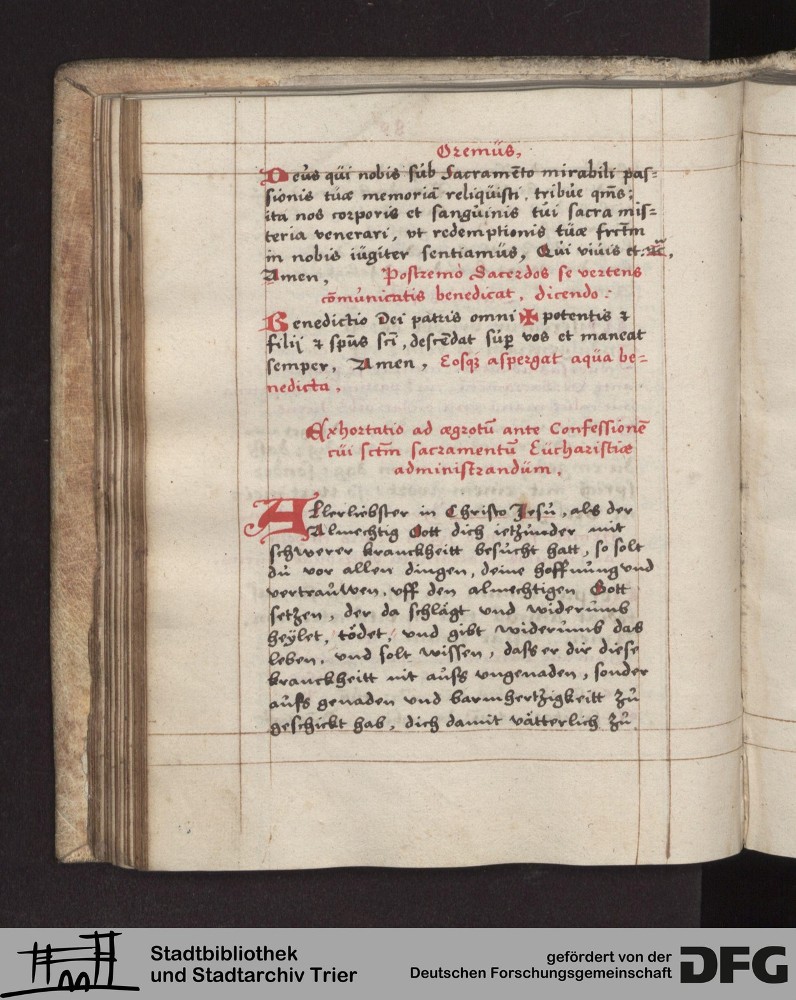 Oremüs,
Deüs qüi nobis süb Sacramēto mirabili pas=
sionis tüæ memoriā reliqüisti, tribüe qm̄s:
ita nos corporis et sangüinis tüi sacra mis=
teria venerari, vt redemptionis tüæ frctm
in nobis iügiter sentiamüs, Qüi viüis et: ꝛc̄,
Amen, Postremò Sacerdos se vertens
cōmunicatis benedicat, dicendo:
Benedictio Dei patris omni ✠ potentis ⁊
filij ⁊ spūs scī, descēdat süp̱ vos et maneat
semper, Amen, Eosqꝫ aspergat aqüa be=
nedicta,
Exhortatio ad ægrotū ante Confessionē
cüi sctm̄ sacramentū Eücharistiæ
administrandüm,
Allerliebster in Christo Jesů, als der
Almechtig Gott dich ietzůnder mit
schwerer kranckheitt besůcht hatt, so solt
dů vor allen dingen, deine hoffnůng vnd
vertraůwen, vff den almechtigen Gott
setzen, der da schlägt vnd widerůmb
heÿlet, tödet, vnd gibt widerůmb das
leben, vnd solt wissen, dass er dir diese
kranckheitt nit aůss vngenaden, sonder
aůss genaden vnd barmhertzigkeitt zů
geschickt hab, dich damit vätterlich zů
Stadtbibliothek
und Stadtarchiv Trier
gefördert von der
Deutschen Forschungsgemeinschaft
DFG